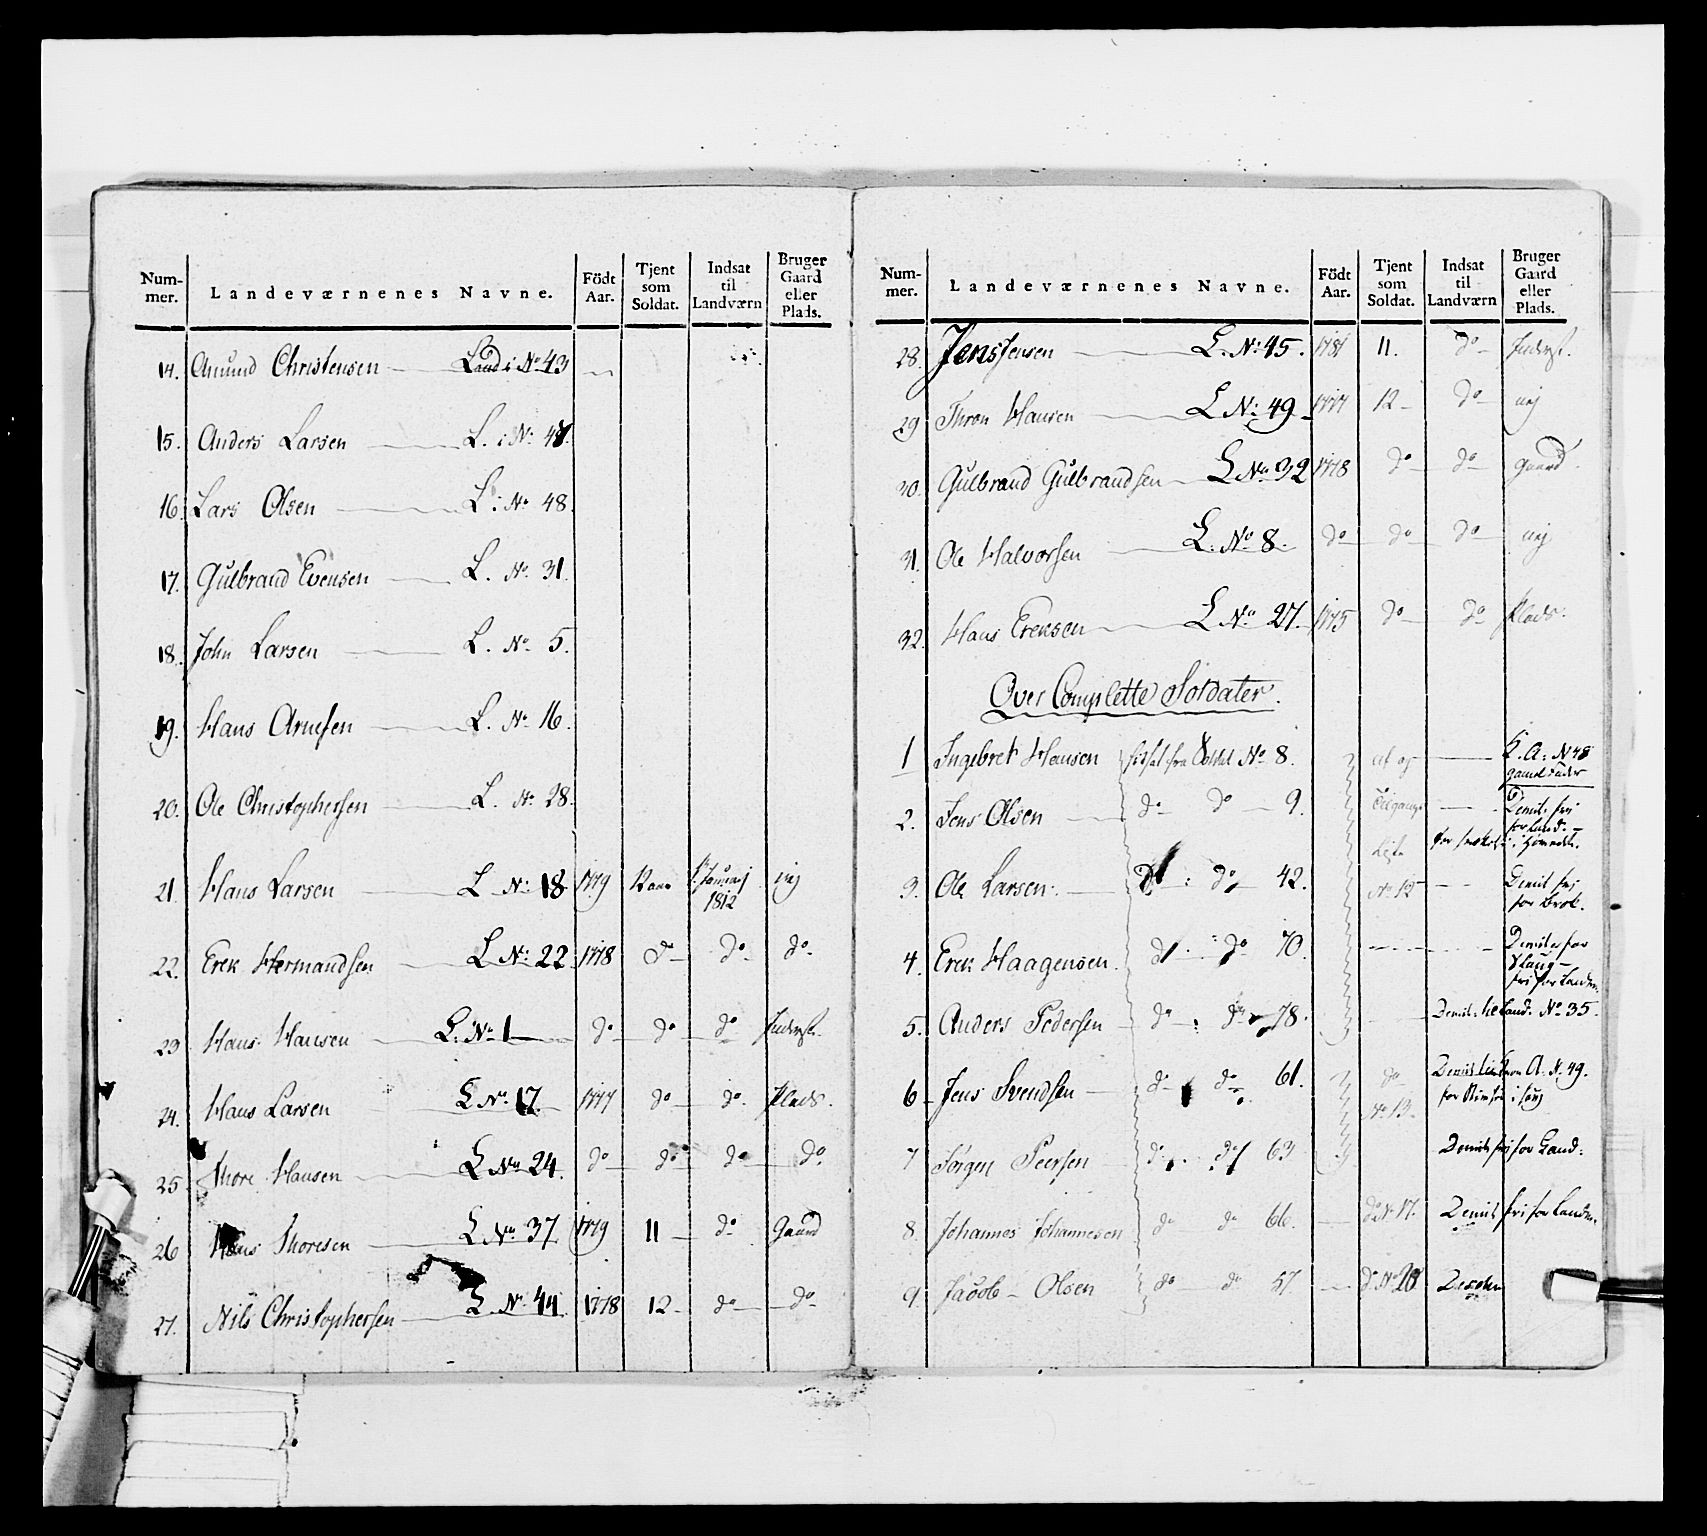 Num-mer. Landeværnenes Navne. Födt Aar. Tjent som Soldat. Indsat til Landværn Bruger Gaard eller Plads.
14. Amund Christensen Land: No 43
15. Anders Larsen L. : No 47.
16. Lars Olsen L. : No 48.
17. Gulbrand Evensen L. No. 31.
18. John Larsen L. No. 5.
19. Hans Arnesen L. No. 16.
20. Ole Christophersen L. No. 28.
21. Hans Larsen L No: 18 1779 12 aar Januarj 1812 nej
22. Erek Hermandsen L No: 22 1778 do do do
23 Hans Hansen L. No 1 do do do Inderst.
24. Hans Larsen L No. 17. 1777 do do Plads.
25 Thore Hansen L No 24 do do do do
26 Hans Thoresen L No. 37 1779 11 do Gaard
27. Nils Christophersen L. No. 44. 1778 12 do do
Num-mer. Landeværnenes Navne. Födt Aar. Tjent som Soldat. Indsat til Landværn Bruger Gaard eller Plads.
28. Jens Jensen L. No: 45. 1781 11. do Inderst.
29 Thron Hansen L No: 49 1777 12 do nej
30. Gulbrand Gulbrandsen L No. 32 1778 do do gaard
31. Ole Halvorsen L. No 8. do do do nej
32. Hans Ereksen L No 27. 1775 do do Plads.
Over Complette Soldater.
1 Ingebret Hansen fra No 8. K. A: N 48
2. Jens Olsen do do 9. Demit: frj
3. Ole Larsen. do : do 42. No 12 Demit frj for
4. Erek Haagensen. do do 70. Demit for fri for Landev.
5. Anders Pedersen do : do 78. Demit: Land: No 35.
6 Jens Svendsen do do 61. do No 13 Demit A. N. 49.
7 Jörgen Peersen do do 63 Demit frj for Land:
8. Johannes Johannesen do do 66. do No 17. Demit fri for Landev.
9. Jacob Olsen do do 57 do No 28